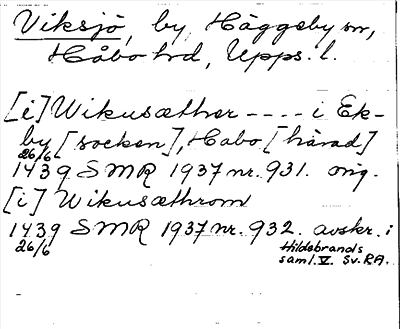 Viksjö, by, Häggeby sn,
Håbo hd, Upps. l.
[i] Wikusæther ---- i Ek-
by [socken], Habo [härad]
26/6
1439 SMR 1937 nr. 931. orig.
[i] Wikusæthrom
1439 SMR 1937 nr. 932. avskr. i
26/6 Hildebrands
saml. V. Sv. RA.